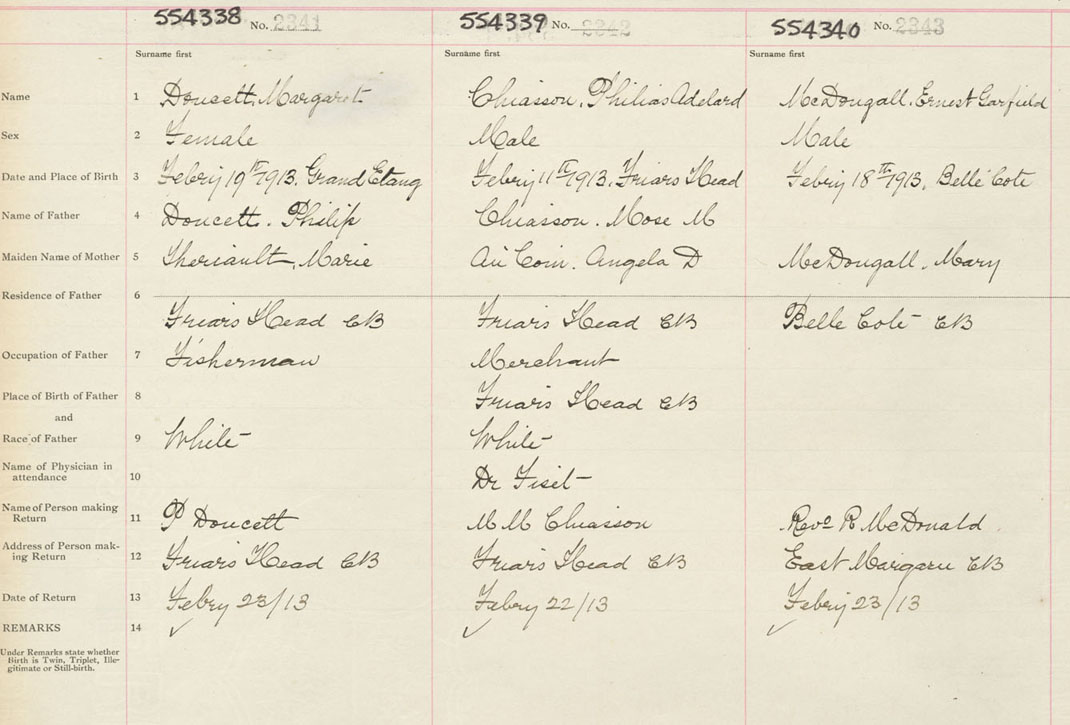 554338 No. 2341 554339 No. 2342 554340 No. 2343
Surname first Surname first Surname first
Name 1 Doucett, Margaret Chiasson, Philias Adelard McDougall, Ernest Garfield
Sex 2 Female Male Male
Date and Place of Birth 3 Febry 19th 1913. Grand Etang Febry 11th 1913. Friars Head Febry 18th 1913, Belle Cote
Name of Father 4 Doucett. Philip Chiasson. Mose M
Maiden Name of Mother 5 Theriault, Marie Au Coin. Angela D McDougall, Mary
Residence of Father 6
Friars Head CB Friars Head CB Belle Cote CB
Occupation of Father 7 Fisherman Merchant
Place of Birth of Father 8 Friars Head CB
and
Race of Father 9 White White
Name of Physician in
attendance 10 Dr Fiset
Name of Person making
Return 11 P Doucett M M Chiasson Revd R McDonald
Address of Person mak-
ing Return 12 Friars Head CB Friars Head CB East Margaree CB
Date of Return 13 Febry 23/13 Febry 22/13 Febry 23/13
REMARKS 14 ✓ ✓ ✓
Under Remarks state whether
Birth is Twin, Triplet, Ille-
gitimate or Still-birth.